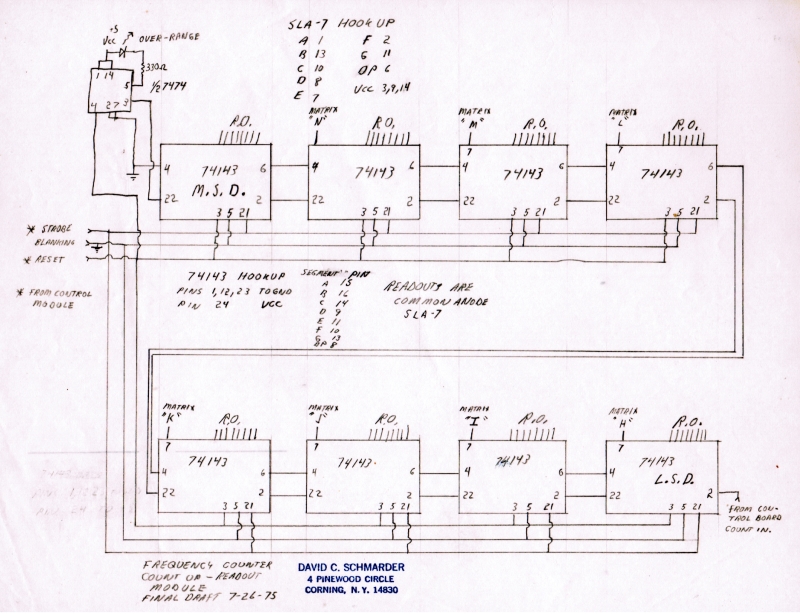 SLA-7 HOOKUP
A 1 F 2
B 13 G 11
C 10 DP 6
D 8 VCC 3,9,14
E 7
+5
VCC OVER-RANGE
330Ω
1 14
5
1/2 7474
4 2 7 3
R.O.
4 74143 6
M.S.D.
22 2
3 5 21
MATRIX
"N"
R.O.
4 74143 6
22 2
3 5 21
MATRIX
"M"
R.O.
7
4 74143 6
22 2
3 5 21
MATRIX
"L"
R.O.
7
4 74143 6
22 2
3 5 21
* STROBE
BLANKING
* RESET
* FROM CONTROL
MODULE
74143 HOOKUP
PINS 1,12,23 TO GND
PIN 24 VCC
SEGMENT - PIN
A 15
B 16
C 14
D 9
E 11
F 10
G 13
DP 8
READOUTS ARE
COMMON ANODE
SLA-7
MATRIX
"K"
R.O.
7
74143
4 6
22 2
3 5 21
MATRIX
"J"
R.O.
7
74143
4 6
22 2
3 5 21
MATRIX
"I"
R.O.
7
74143
4 6
22 2
3 5 21
MATRIX
"H"
R.O.
7
74143
L.S.D.
2
3 5 21
FROM CON-
TROL BOARD
COUNT IN.
FREQUENCY COUNTER
COUNT UP - READOUT
MODULE
FINAL DRAFT 7-26-75
DAVID C. SCHMARDER
4 PINEWOOD CIRCLE
CORNING, N.Y. 14830